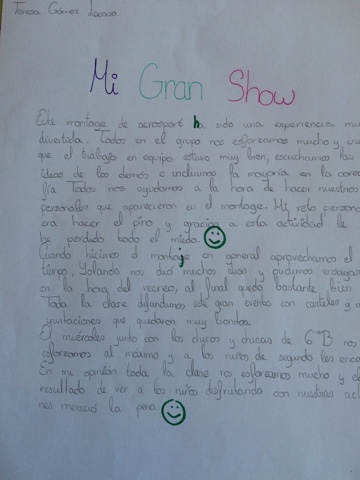 Teresa Gómez
Mi Gran Show
Este montage de acrosport ha sido una experiencia
divertida. Todos en el grupo nos esforzamos mucho y
que el trabajo en equipo estuvo muy bien, escuchamos las
ideas de los demás e incluimos la mayoría en la
fía. Todos nos ayudamos a la hora de hacer nuestros
personales que aparecieron en el montage. Mi reto
era hacer el pino y gracias a esta actividad le
he perdido todo el miedo.
Cuando hicimos el montaje en general aprovechamos el
tiempo, Yolanda nos dió muchos días y pudimos
en la hora del recreo, al final quedó bastante bien
Toda la clase difundimos este gran evento con carteles y
vitaciones que quedaron muy bonitos.
El miércoles junto con los chicos y chicas de 6ºB nos
esforzamos al máximo y a los niños de segundo les
En mi opinión toda la clase nos esforzamos mucho y el
resultado de ver a los niños disfrutando con nuestras
nes mereció la pena